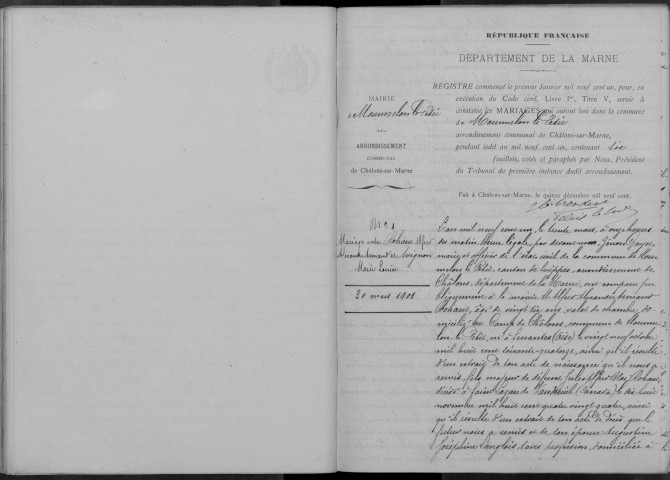 RÉPUBLIQUE FRANÇAISE
DÉPARTEMENT DE LA MARNE
REGISTRE commencé le premier Janvier mil neuf cent un, pour, en
exécution du Code civil, Livre 1er, Titre V, servir à
constater les MARIAGES qui auront lieu dans la commune
de Mourmelon le Petit
arrondissement communal de Châlons-sur-Marne,
pendant ledit an mil neuf cent un, contenant six
feuillets, cotés et paraphés par Nous, Président
du Tribunal de première instance dudit arrondissement.
Fait à Châlons-sur-Marne, le quinze décembre mil neuf cent.
MAIRIE
de Mourmelon le Petit
ARRONDISSEMENT
COMMUNAL
de Châlons-sur-Marne
No 1
Mariage entre Rohaut Alfred
Alexandre Armand et
Marie Louise
30 mars 1901
L'an mil neuf cent un, le trente mars, à onze heures
du matin, heure légale, par devant nous,
maire et officier de l'état civil de la commune de Mour
melon le Petit, canton de Suippes, arrondissement de
Châlons, département de la Marne, ont comparu pu
bliquement à la mairie M. Alfred Alexandre Armand
Rohaut, âgé de vingt six ans, valet de chambre, do
micilié au Camp de Châlons, commune de Mourme
lon le Petit, né à Senantes (Oise) le vingt neuf octobre
mil huit cent soixante quatorze, ainsi qu'il résulte
d'un extrait de son acte de naissance qu'il nous a
remis, fils majeur de défunt Jules Alfred Rohaut,
décédé à Saint Lazare de Vaudreuil (Canada) le dix huit
novembre mil huit cent quatre vingt quatre, ainsi
qu'il résulte d'un extrait de son acte de décès que le
futur nous a remis et de son épouse Augustine
Joséphine Langlois, sans profession, domiciliée à